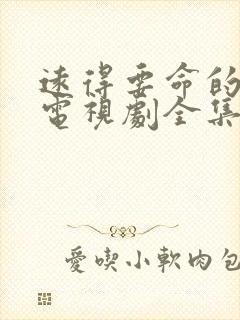 遠得要命的
電視劇全集
愛喫小軟肉包